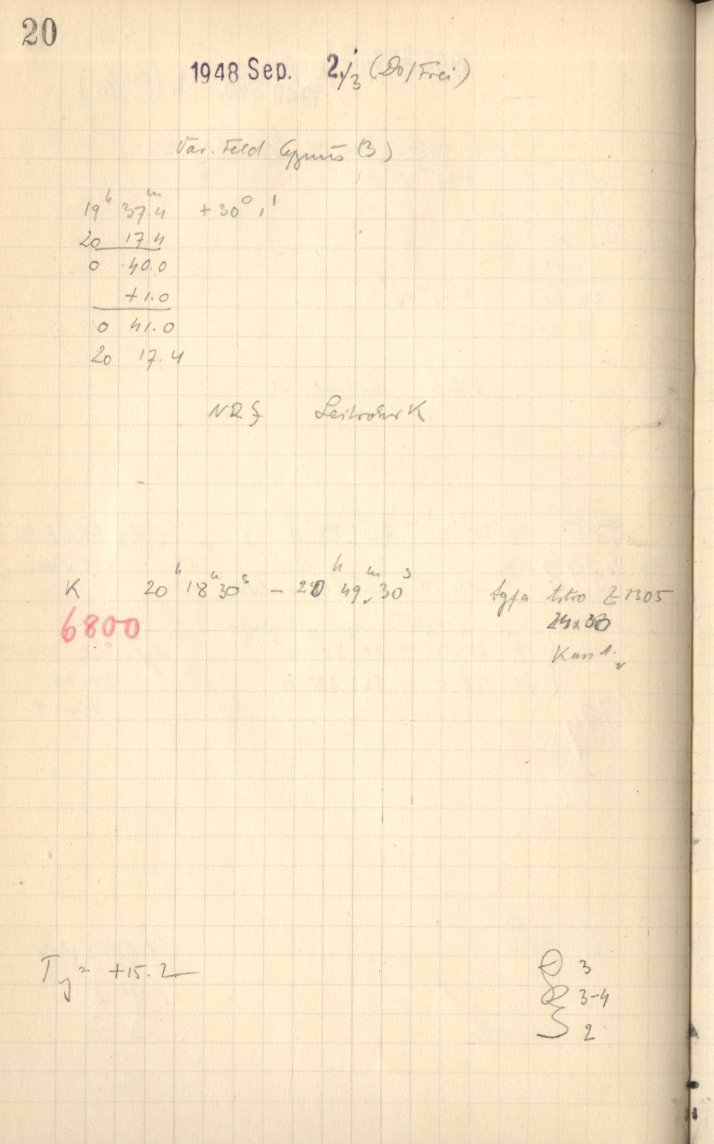 20
1948 Sep. 2./3 (Do/Frei)
Var. Feld Cygnus (3)
19ʰ 37.4ᵐ +30° 1'
20 17.4
0 40.0
+1.0
0 41.0
20 17.4
Leitrohr K
K 20ʰ 18ᵐ 30ˢ – 20ʰ 49ᵐ 30ˢ Agfa Astro Z 1305
6800 24x30
Kass
T = +15.2
3
3-4
2